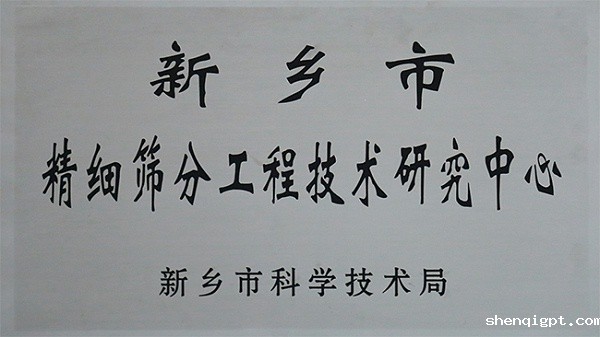 新乡市
精细筛分工程技术研究中心
新乡市科学技术局
shenqigpt.com